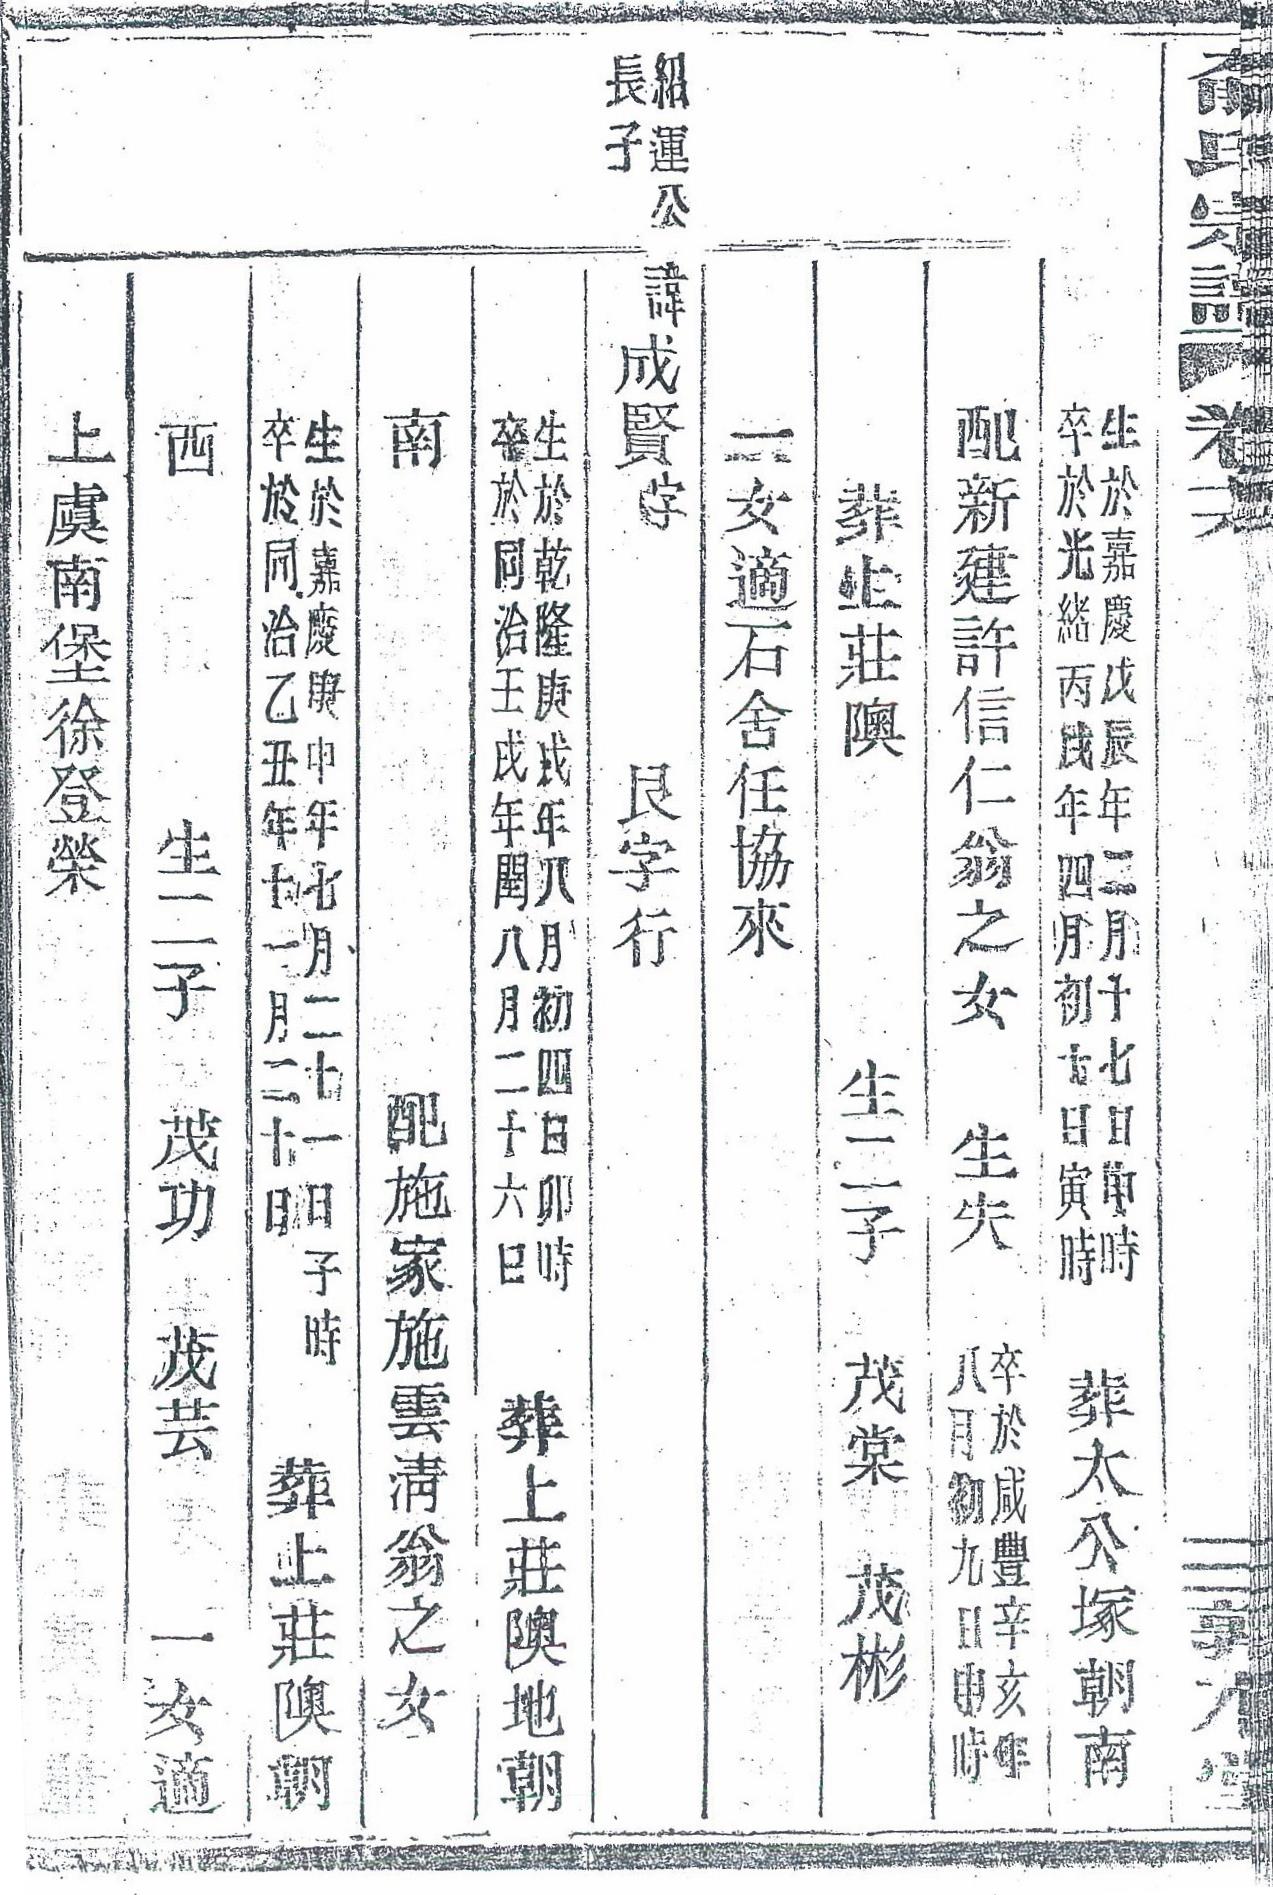 氏宗譜 卷六
生於嘉慶戊辰年二月十七日申時
卒於光緒丙戌年四月初七日寅時
葬太公塚朝南
配新建許信仁翁之女 生失
卒於咸豐辛亥年
八月初九日申時
葬上莊隩 生二子 茂棠 茂彬
二女適石舍任協來
紹運公
長子
諱成賢字 艮字行
生於乾隆庚戌年八月初四日卯時
卒於同治壬戌年閏八月二十六日
葬上莊隩地朝
南 配施家施雲清翁之女
生於嘉慶庚申年七月二十一日子時
卒於同治乙丑年十一月二十日
葬上莊隩朝
西 生二子 茂功 茂芸 一女適
上虞南堡徐登榮